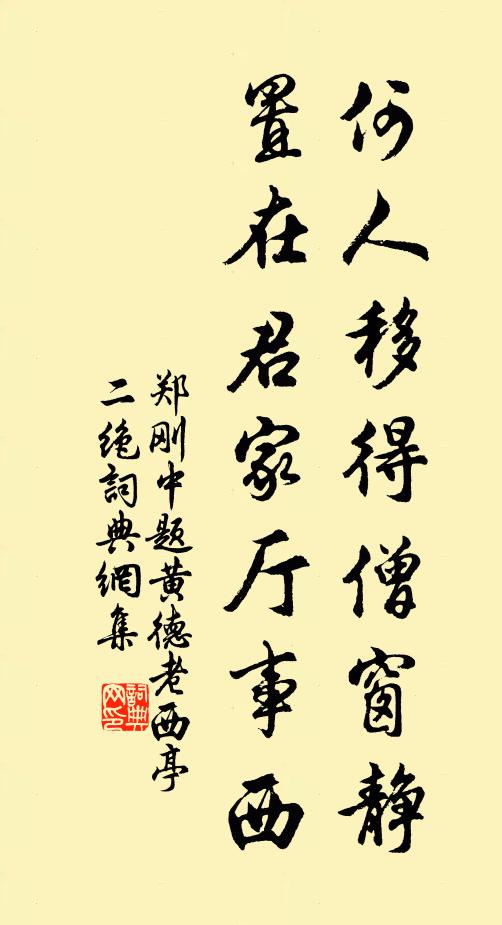 何人移得僧窗静
置在君家厅事西
郑刚中题黄德老西亭
二绝词典網集
詞典网印